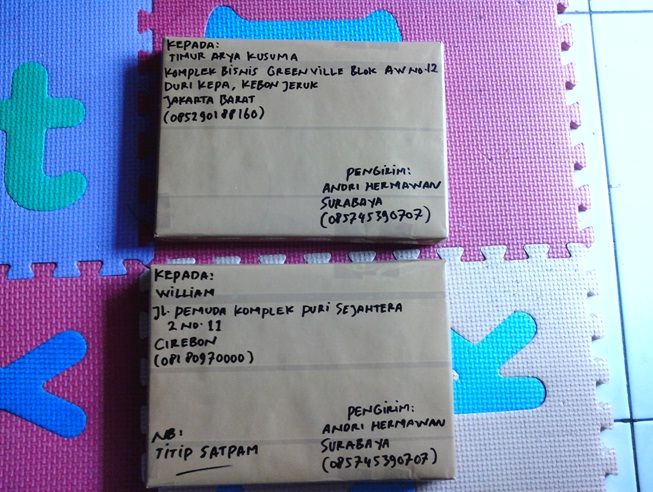 KEPADA:
TIMUR ARYA KUSUMA
KOMPLEK BISNIS GREENVILLE BLOK AW NO.12
DURI KEPA, KEBON JERUK
JAKARTA BARAT
(085290188160)
PENGIRIM:
ANDRI HERMAWAN
SURABAYA
(085745390707)
KEPADA:
WILLIAM
JL. PEMUDA KOMPLEK PURI SEJAHTERA
2 NO. 11
CIREBON
(08180970000)
NB:
TITIP SATPAM
PENGIRIM:
ANDRI HERMAWAN
SURABAYA
(085745390707)
t